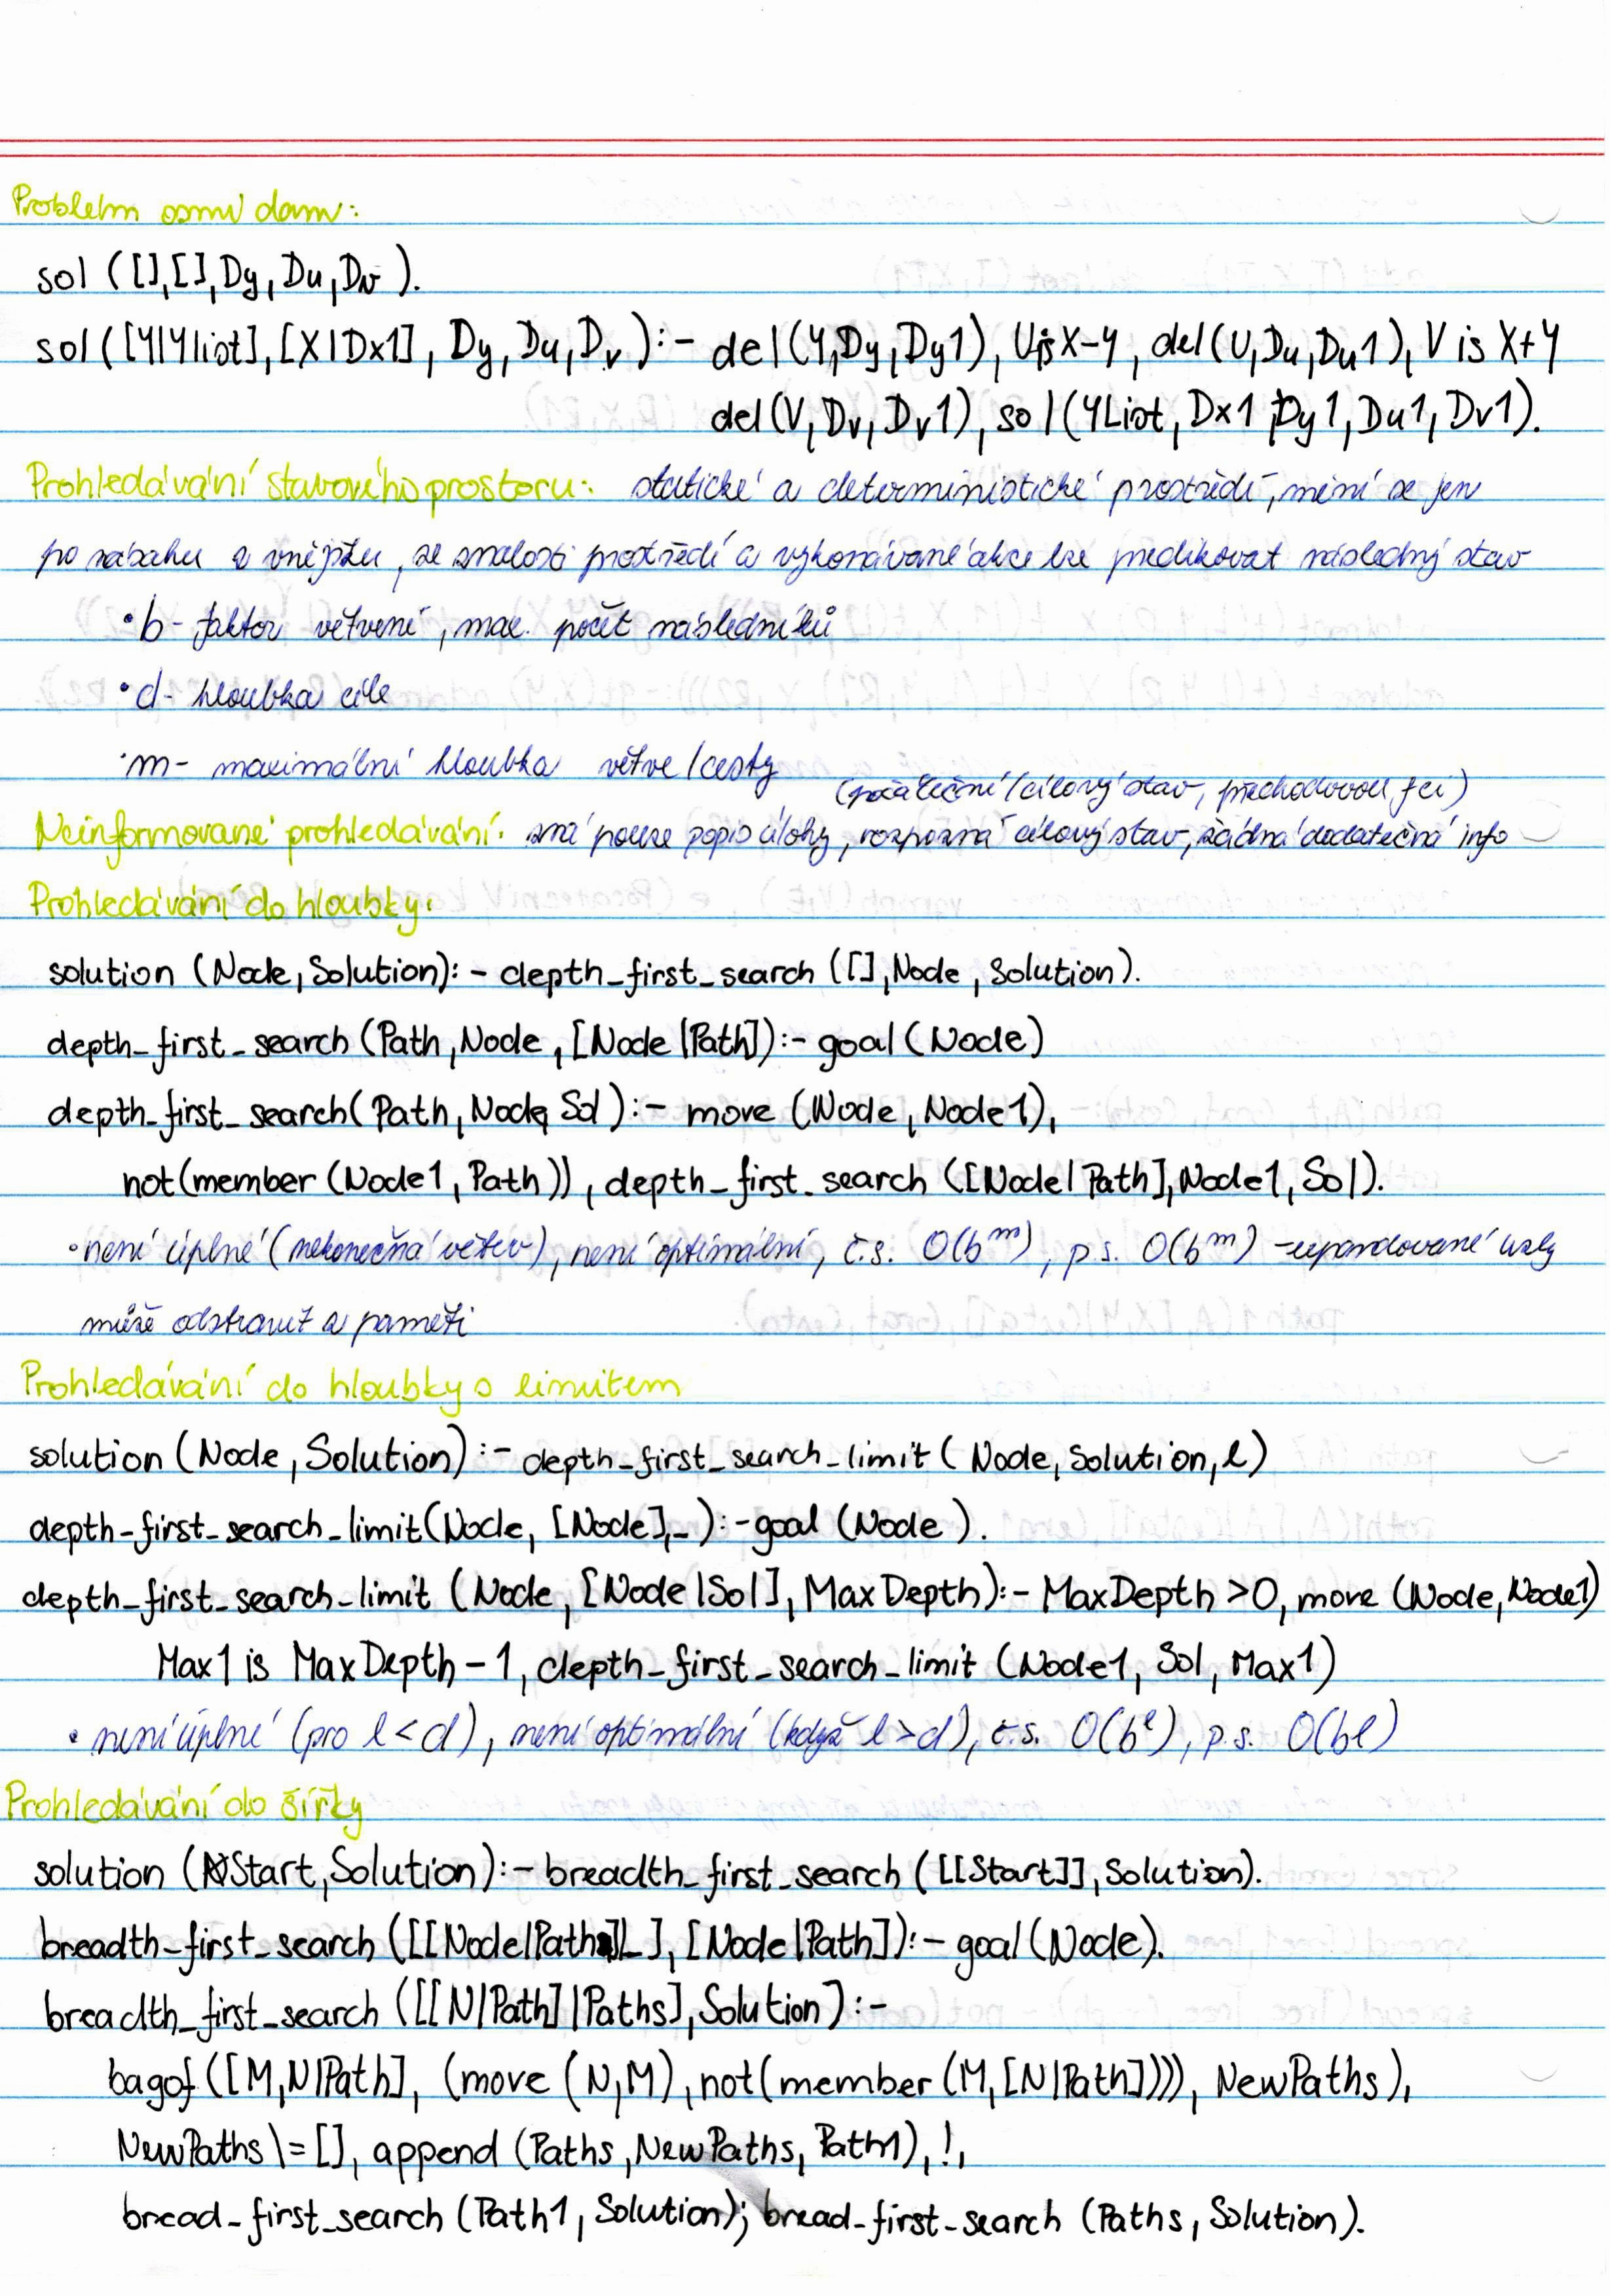 Problém osmi dam:
sol ([],[],Dy,Du,Dv ).
sol ([Y|Ylist],[X|Dx1], Dy, Du, Dv):- del(Y,Dy,Dy1), U is X-Y, del(U,Du,Du1), V is X+Y
del(V,Dv,Dv1), sol(YList, Dx1,Dy1,Du1,Dv1).
Prohledávání stavového prostoru: statické a deterministické prostředí, mění se jen
po zásahu z vnějšku, ze znalosti prostředí a vykonávané akce lze predikovat následný stav
• b - faktor větvení, max. počet následníků
• d - hloubka cíle
• m - maximální hloubka větve/cesty
(počáteční/cílový stav, přechodovou fci)
Neinformované prohledávání: zná pouze popis úlohy, rozpozná cílový stav, žádná dodatečná info
Prohledávání do hloubky:
solution (Node, Solution):- depth_first_search ([],Node, Solution).
depth_first_search (Path,Node,[Node|Path]):- goal (Node)
depth_first_search (Path,Node, Sol):- move (Node, Node1),
not(member (Node1, Path)), depth_first_search ([Node|Path],Node1, Sol).
• není úplné (nekonečná větev), není optimální, č.s. O(b^m), p.s. O(b^m) - expandované uzly
může odstranit z paměti
Prohledávání do hloubky s limitem
solution (Node, Solution):- depth_first_search_limit (Node, Solution, l)
depth_first_search_limit (Node, [Node],_):- goal (Node).
depth_first_search_limit (Node, [Node|Sol], MaxDepth):- MaxDepth >0, move (Node, Node1)
Max1 is MaxDepth-1, depth_first_search_limit (Node1, Sol, Max1)
• není úplné (pro l<d), není optimální (když l>d), č.s. O(b^l), p.s. O(bl)
Prohledávání do šířky
solution (Start, Solution):- breadth_first_search ([[Start]], Solution).
breadth_first_search ([[Node|Path]|_], [Node|Path]):- goal (Node).
breadth_first_search ([[N|Path]|Paths], Solution):-
bagof ([M,N|Path], (move (N,M), not(member (M,[N|Path]))), NewPaths),
NewPaths \= [], append (Paths, NewPaths, Path1), !,
bread_first_search (Path1, Solution); bread_first_search (Paths, Solution).